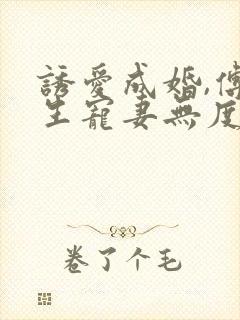 誘愛成婚,傅
生寵妻無度
卷了个毛